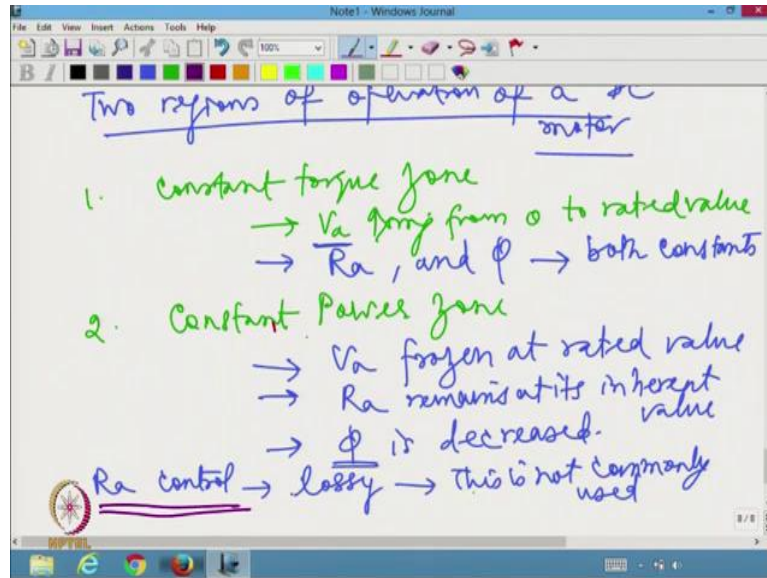 Note1 - Windows Journal
File Edit View Insert Actions Tools Help
100%
B I
Two regions of operation of a DC
motor
1. Constant torque zone
→ Va going from 0 to rated value
→ Ra, and φ → both constants
2. Constant Power zone
→ Va frozen at rated value
→ Ra remains at its inherent
value
→ φ is decreased.
Ra control → lossy → This is not commonly
used
NPTEL
8/8